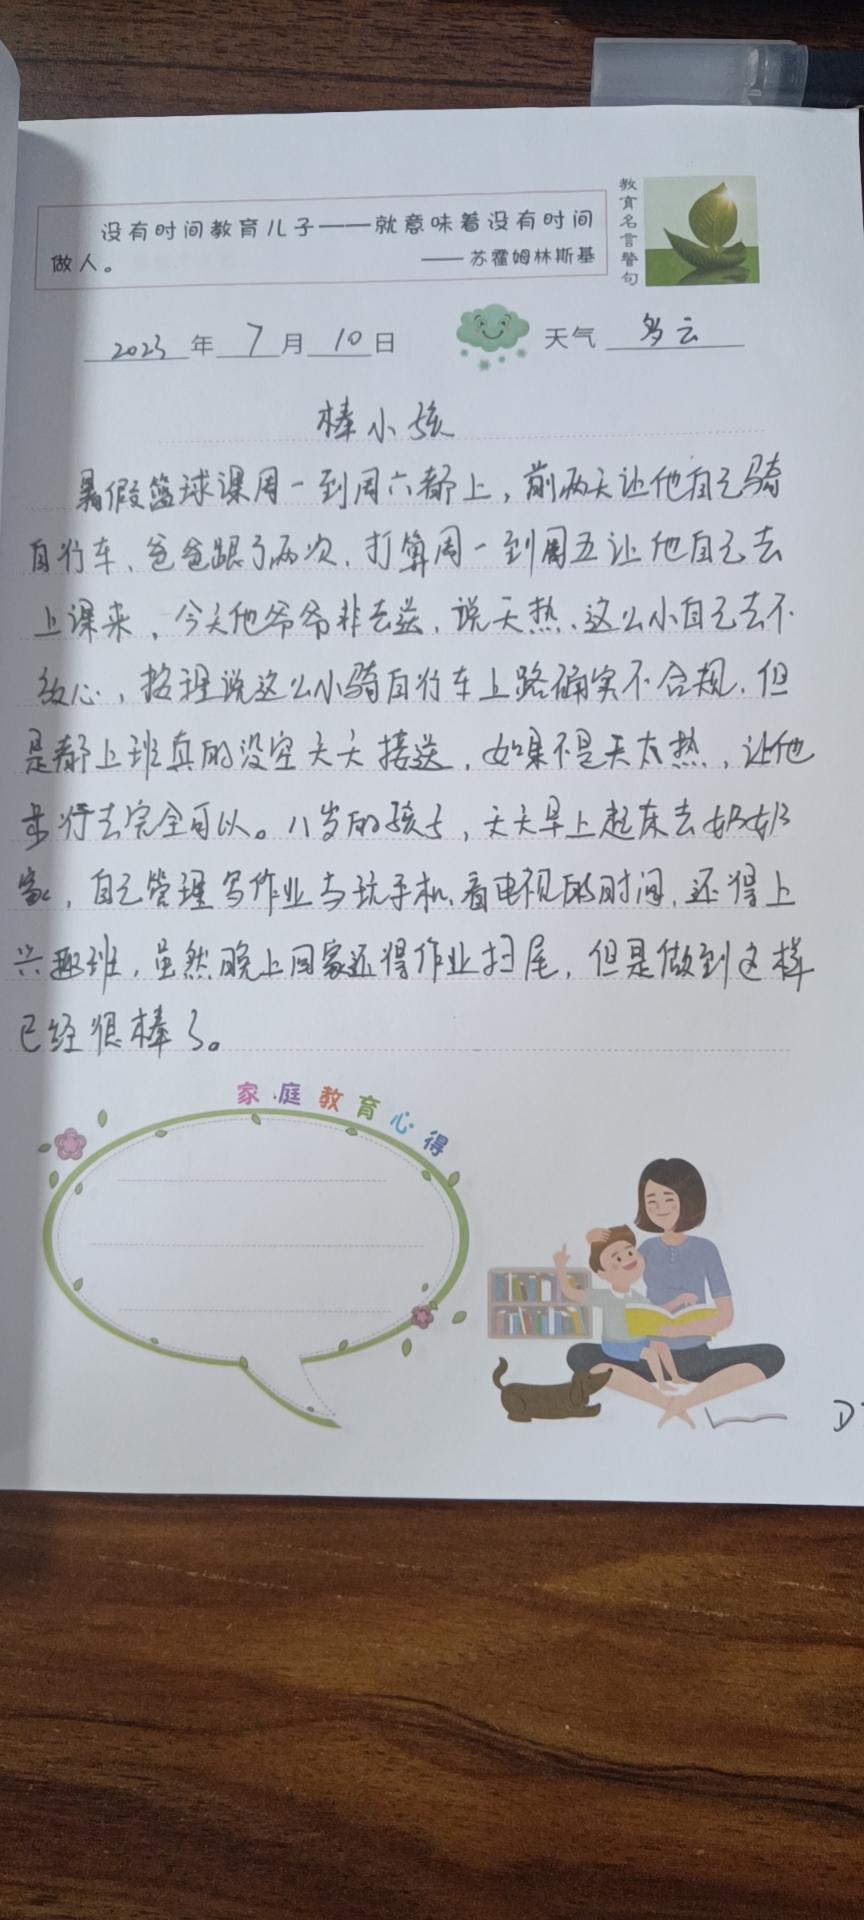 没有时间教育儿子——就意味着没有时间
做人。
——苏霍姆林斯基
教育名言警句
2023年7月10日 天气 多云
棒小孩
暑假篮球课周一到周六都上，前两天让他自己骑
自行车、爸爸跟了两次，打算周一到周五让他自己去
上课来，今天他爷爷非去送，说天热、这么小自己去不
放心，按理说这么小骑自行车上路确实不合规，但
是都上班真的没空天天接送，如果不是天太热，让他
步行去完全可以。八岁的孩子，天天早上起床去奶奶
家，自己管理写作业与玩手机、看电视的时间，还得上
兴趣班，虽然晚上回家还得作业扫尾，但是做到这样
已经很棒了。
家庭教育心得